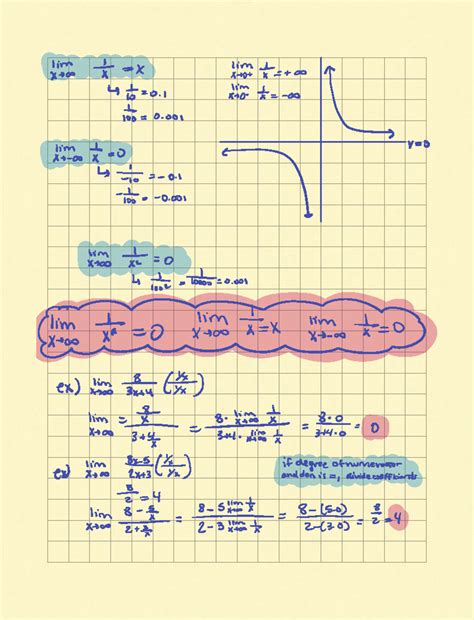 lim x→∞ 1/x = x
↳ 1/10 = 0.1
1/100 = 0.001
lim x→0⁺ 1/x = +∞
lim x→0⁻ 1/x = -∞
y=0
lim x→-∞ 1/x = 0
↳ 1/-10 = -0.1
1/-100 = -0.001
lim x→∞ 1/x² = 0
↳ 1/100² = 1/10000 = 0.001
lim x→∞ 1/xⁿ = 0 lim x→∞ 1/x = x lim x→-∞ 1/x = 0
ex) lim x→∞ 8/3x+4 (1/x / 1/x)
lim x→∞ = 8/x / 3+4/x = 8· lim x→∞ 1/x / 3+4· lim x→∞ 1/x = 8·0 / 3+4·0 = 0
ex) lim x→∞ 8x-5 / 2x+3 (1/x / 1/x)
8/2 = 4
if degree of numerator
and den is =, divide coefficients
lim x→∞ 8 - 5/x / 2 + 3/x = 8 - 5 lim x→∞ 1/x / 2 - 3 lim x→∞ 1/x = 8-(5·0) / 2-(3·0) = 8/2 = 4